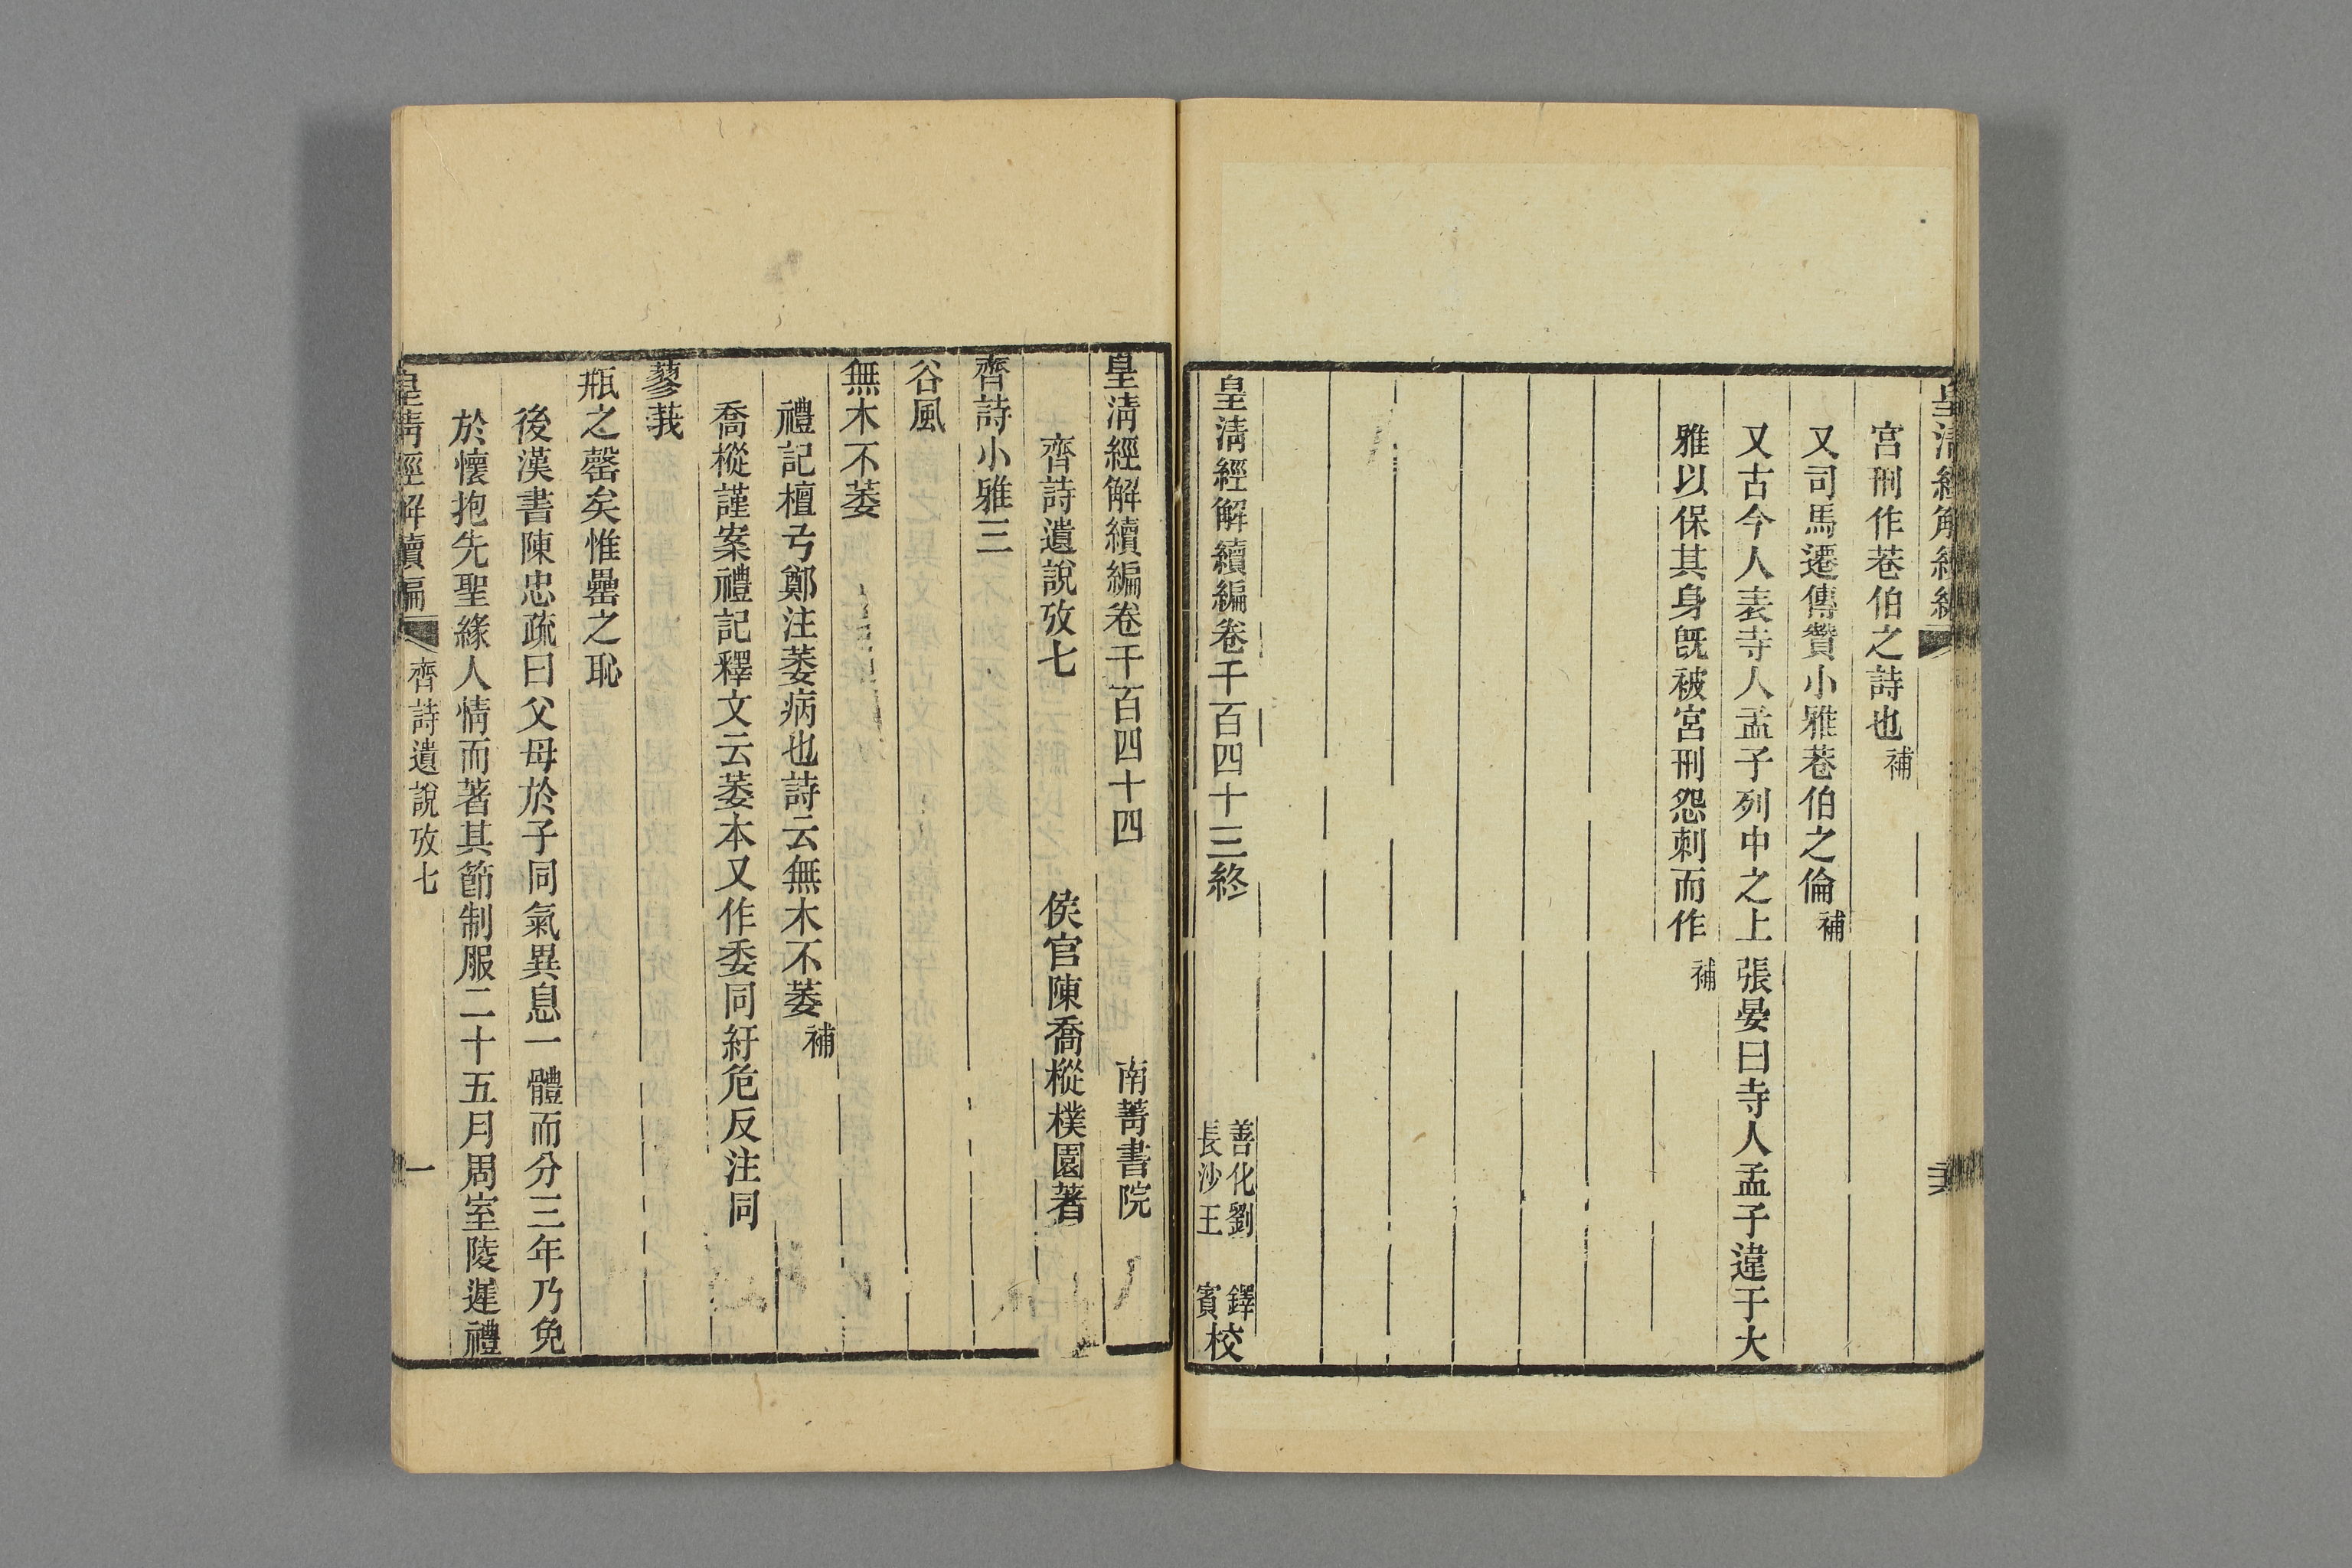 皇清經解續編
宮刑作巷伯之詩也補
又司馬遷傳贊小雅巷伯之倫補
又古今人表寺人孟子列中之上張晏曰寺人孟子違于大
雅以保其身旣被宮刑怨刺而作補
皇清經解續編卷千百四十三終
善化劉鐸
長沙王賓
校
皇清經解續編卷千百四十四
南菁書院
齊詩遺說攷七
侯官陳喬樅樸園著
齊詩小雅三
谷風
無木不萎
禮記檀弓鄭注萎病也詩云無木不萎補
喬樅謹案禮記釋文云萎本又作委同紆危反注同
蓼莪
瓶之罄矣惟罍之恥
後漢書陳忠疏曰父母於子同氣異息一體而分三年乃免
於懷抱先聖緣人情而著其節制服二十五月周室陵遲禮
皇清經解續編
齊詩遺說攷七
一